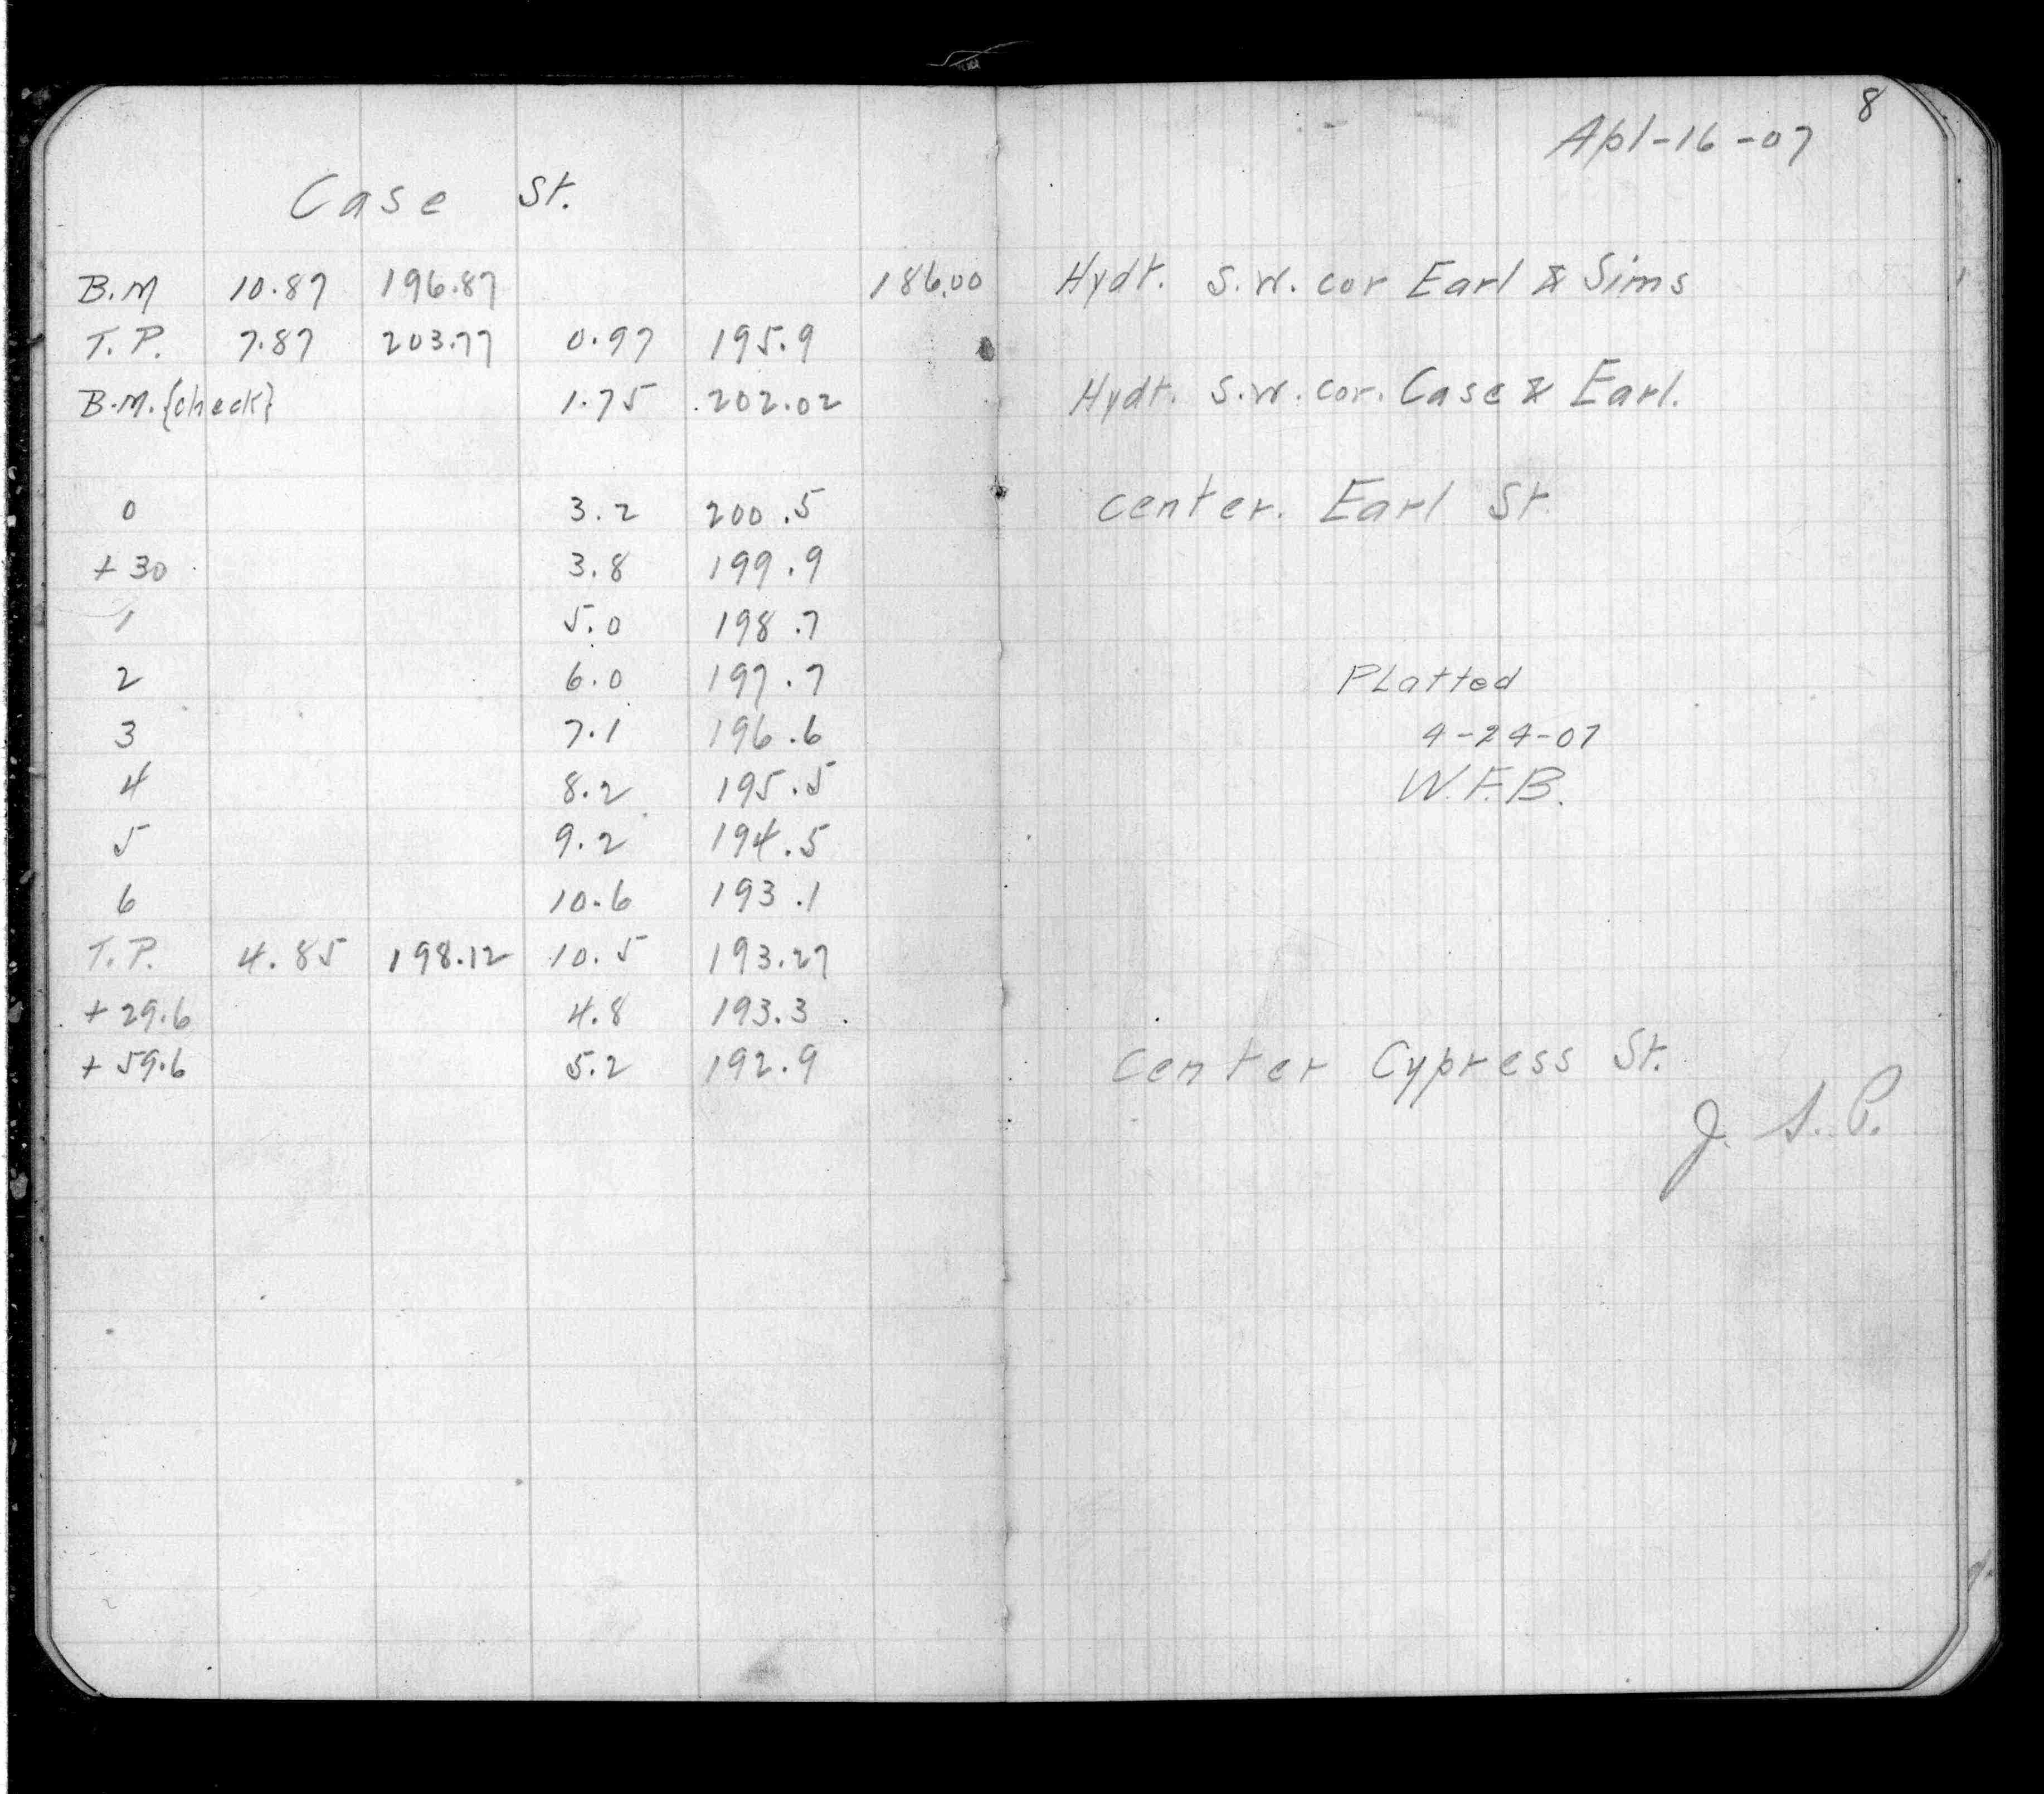 8
Apl-16-07
Case St.
B.M 10.87 196.87 186.00 Hydt. S.W. cor Earl & Sims
T.P. 7.87 203.77 0.97 195.9
B.M. {check} 1.75 202.02 Hydt. S.W. cor. Case & Earl.
0 3.2 200.5 center. Earl St.
+30 3.8 199.9
1 5.0 198.7
2 6.0 197.7 PLatted
3 7.1 196.6 4-24-07
4 8.2 195.5 W.F.B.
5 9.2 194.5
6 10.6 193.1
T.P. 4.85 198.12 10.5 193.27
+29.6 4.8 193.3
+59.6 5.2 192.9 center Cypress St.
J. S. P.